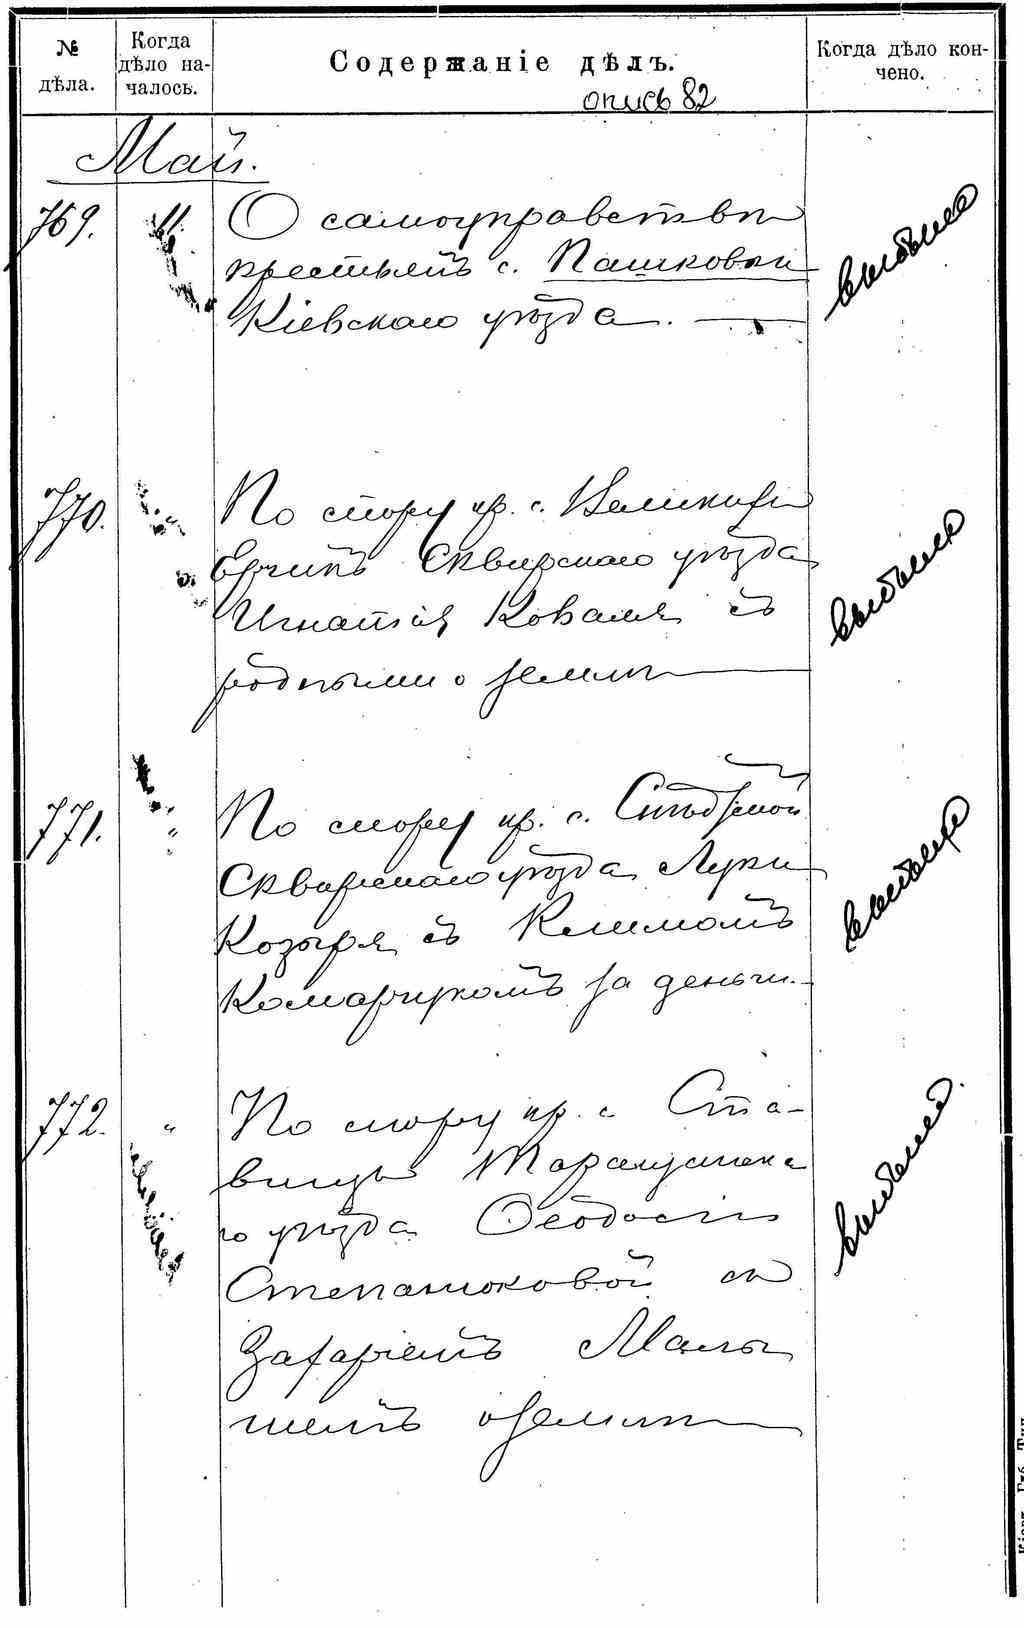 № дѣла.
Когда дѣло началось.
Содержаніе дѣлъ.
Когда дѣло кончено.
опись 82
Май.
769. 11.
О самоуправствѣ
крестьянъ с. Пашковки
Кіевскаго уѣзда.
выбыло
770. "
По спору кр. с. Великихъ
Ерчикъ Сквирскаго уѣзда
Игнатія Коваля съ
родными о землѣ
выбыло
771. "
По спору кр. с.
Сквирскаго уѣзда Луки
Козыря съ Климомъ
Комарчукомъ за деньги.
выбыло
772. "
По спору кр. с. Ста-
вищъ Таращанска
го уѣзда Ѳеодосіи
Степанюковой съ
Захаріемъ Малы
шемъ о землѣ
выбыло